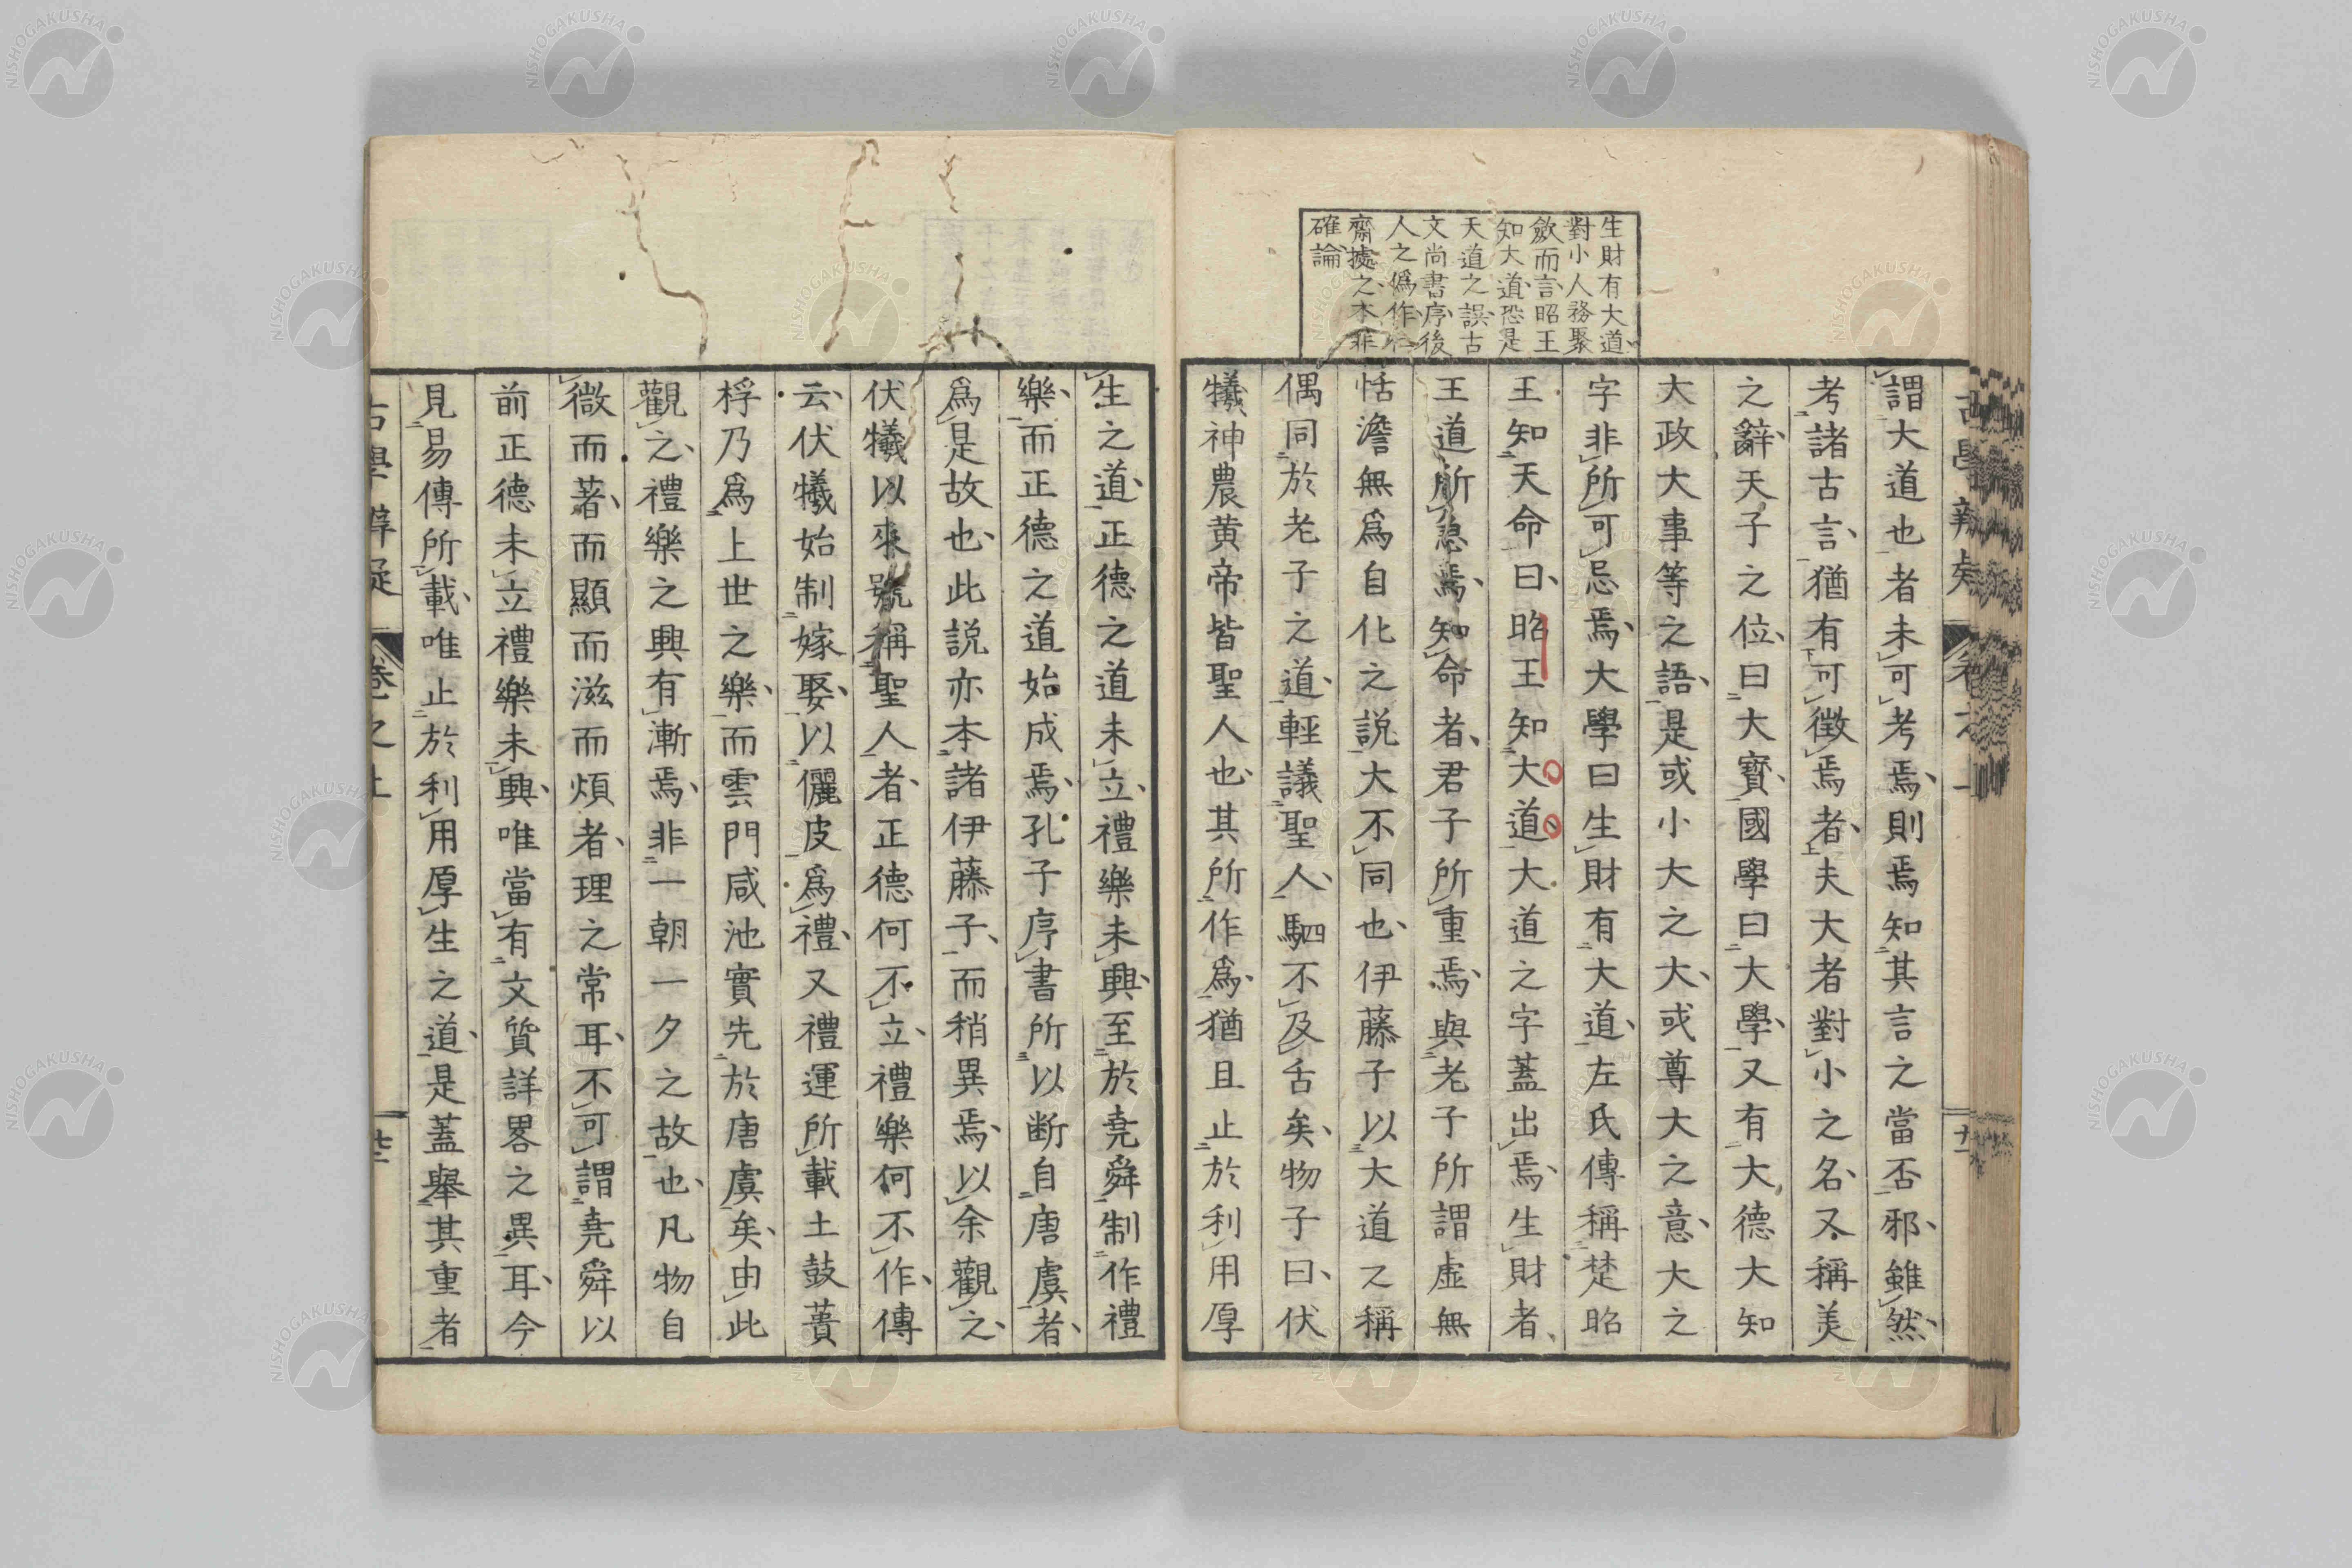 生財有大道
對小人務聚
斂而言昭王
知大道恐是
天道之誤古
文尚書序後
人之僞作仁
齋據之本非
確論
謂大道也者未可考焉則焉知其言之當否邪雖然
考諸古言猶有可徴焉者夫大者對小之名又稱美
之辭天子之位曰大寳國學曰大學又有大德大知
大政大事等之語是或小大之大或尊大之意大之
字非所可忌焉大學曰生財有大道左氏傳稱楚昭
王知天命曰昭王知大道大道之字蓋出焉生財者
王道所急焉知命者君子所重焉與老子所謂虛無
恬澹無爲自化之説大不同也伊藤子以大道之稱
偶同於老子之道輕議聖人駟不及舌矣物子曰伏
犧神農黄帝皆聖人也其所作爲猶且止於利用厚
生之道正德之道未立禮樂未興至於堯舜制作禮
樂而正德之道始成焉孔子序書所以断自唐虞者
爲是故也此説亦本諸伊藤子而稍異焉以余觀之
伏犧以來號稱聖人者正德何不立禮樂何不作傳
云伏犧始制嫁娶以儷皮爲禮又禮運所載土鼓蕢
桴乃爲上世之樂而雲門咸池實先於唐虞矣由此
觀之禮樂之興有漸焉非一朝一夕之故也凡物自
微而著而顯而滋而煩者理之常耳不可謂堯舜以
前正德未立禮樂未興唯當有文質詳畧之異耳今
見易傳所載唯止於利用厚生之道是蓋舉其重者
古學辨疑 卷之上 廿二